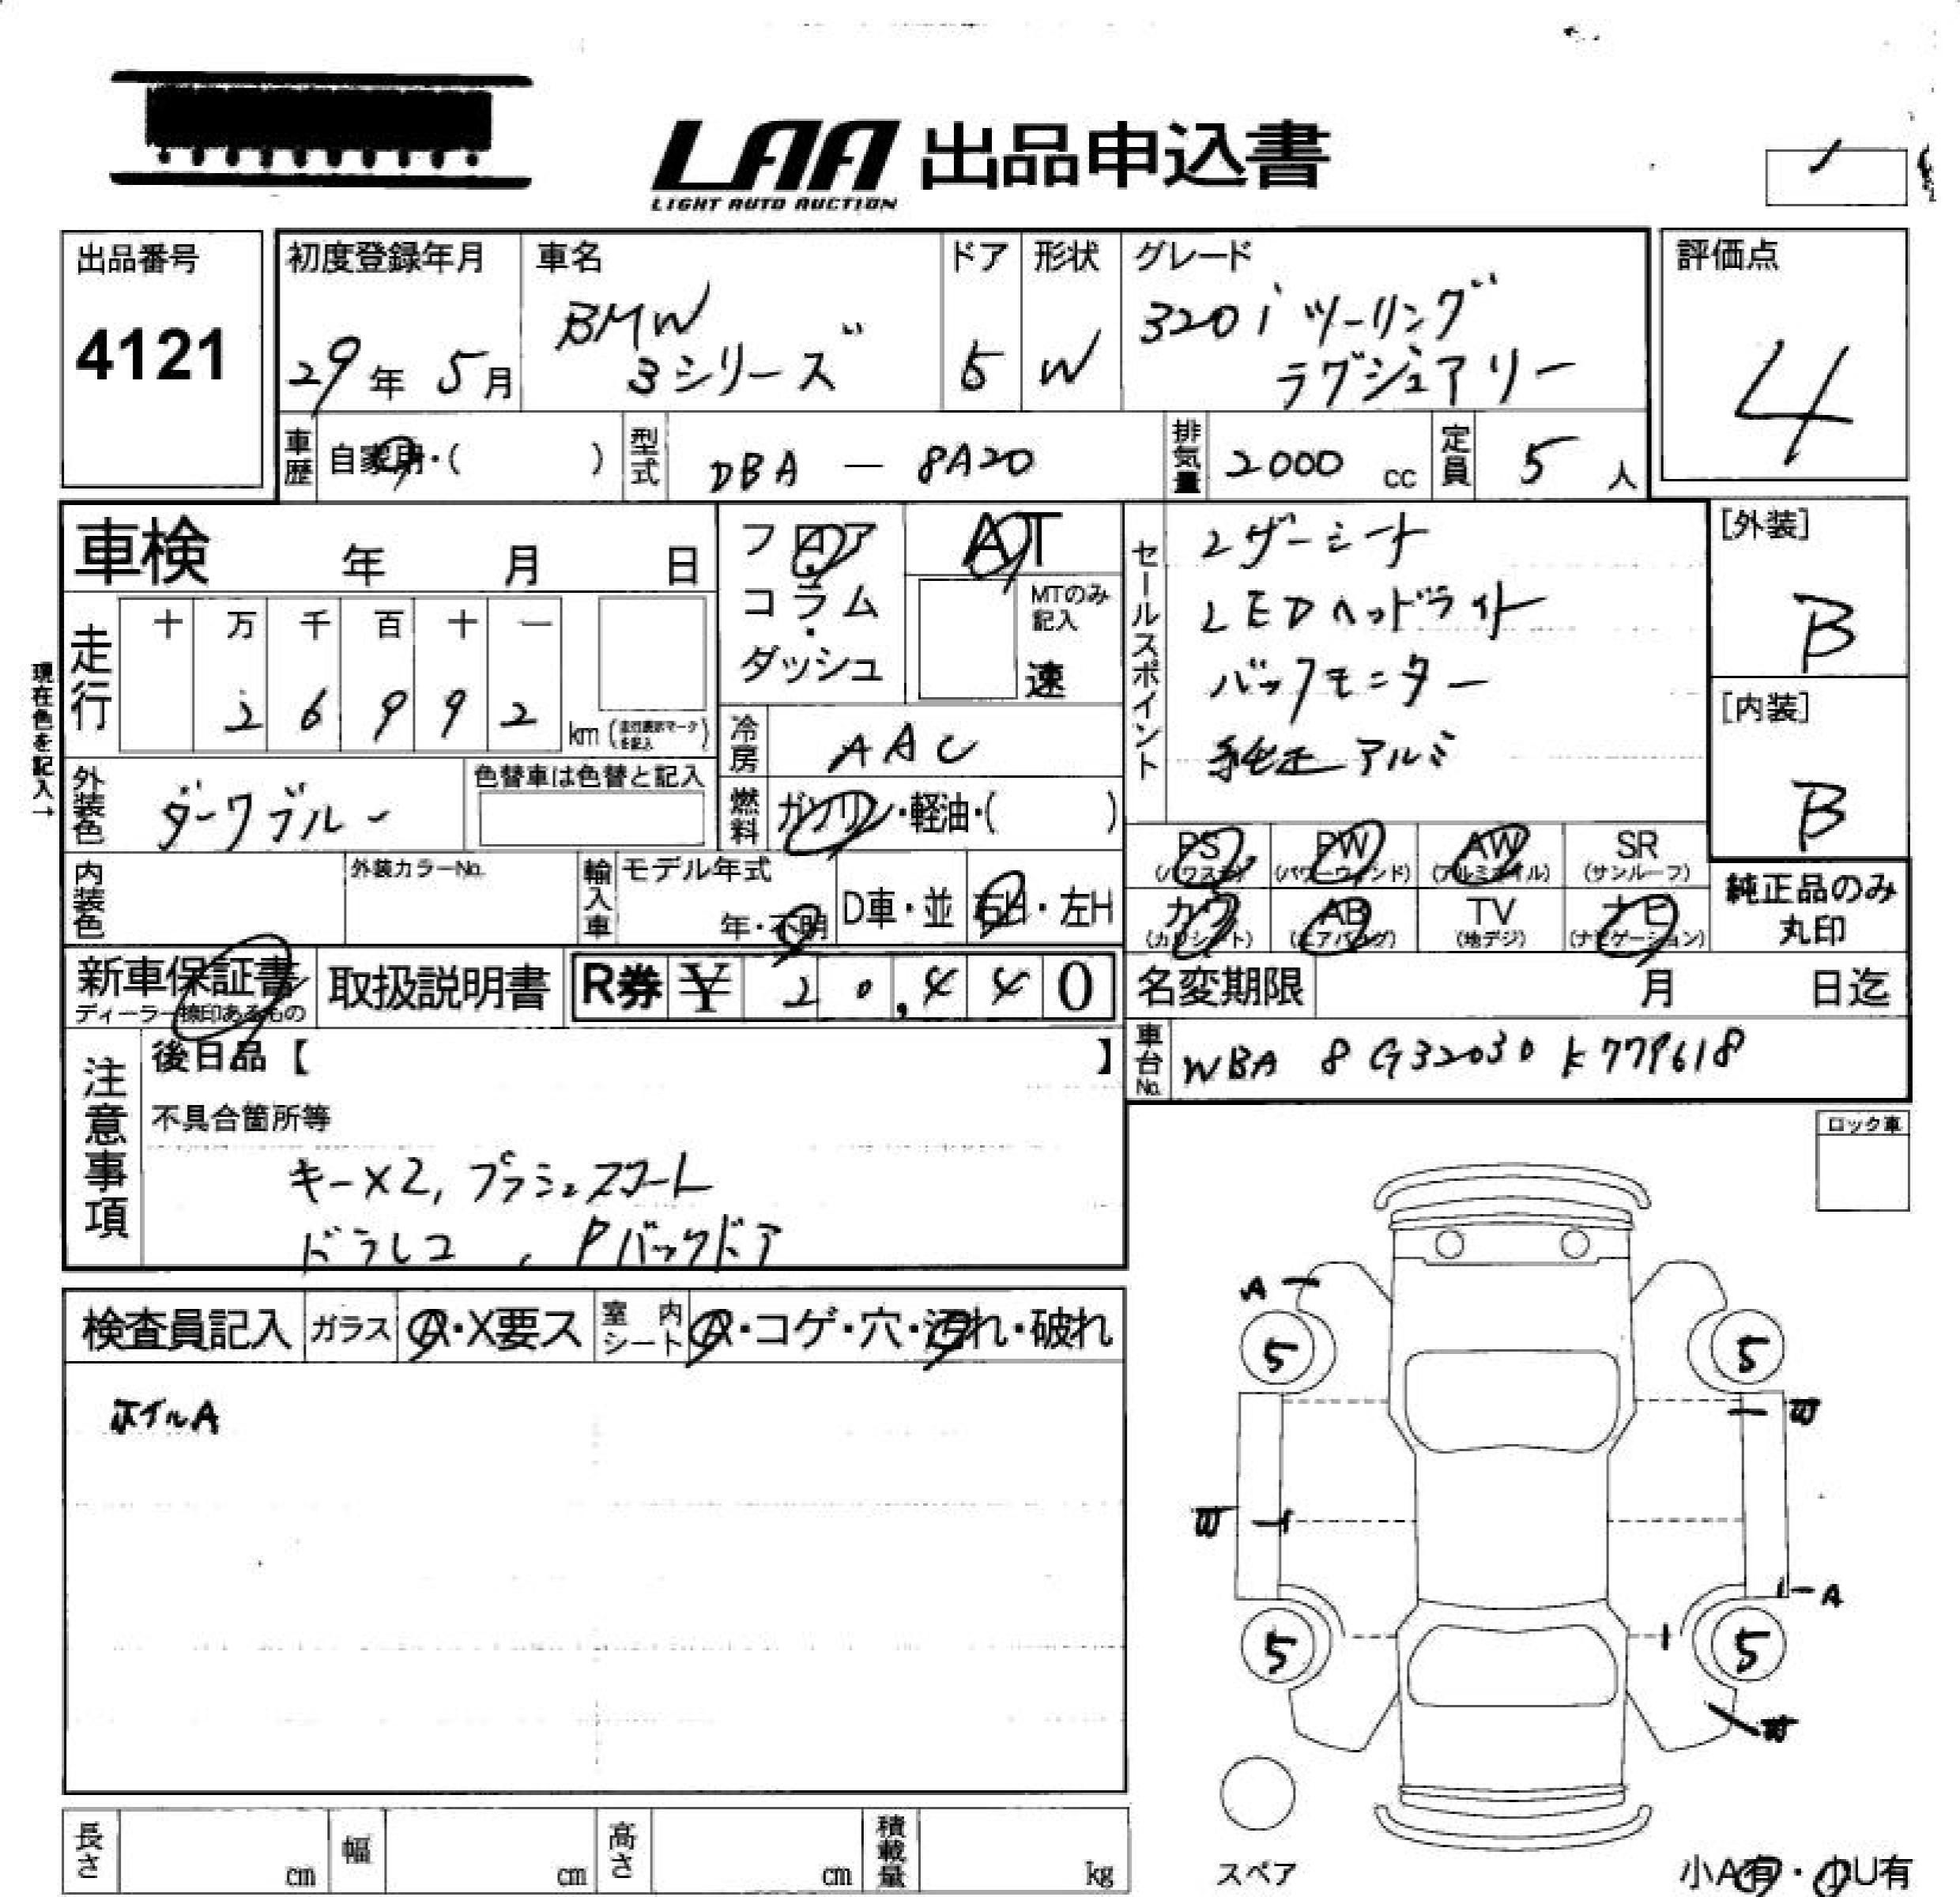 LAA 出品申込書
LIGHT AUTO AUCTION
出品番号
4121
初度登録年月
29年 5月
車名
BMW
3シリーズ
ドア
5
形状
W
グレード
320i ツーリング
ラグジュアリー
評価点
4
車歴 自家用・( )
型式 DBA — 8A20
排気量 2000 cc
定員 5 人
車検 年 月 日
フロア
コラム
・
ダッシュ
AT
MTのみ
記入
速
セールスポイント
レザーシート
LEDヘッドライト
バックモニター
純正アルミ
[外装]
B
[内装]
B
現在色を記入→
走行
十 万 千 百 十 一
2 6 9 9 2
km (走行表示マークを記入)
冷房 AAC
外装色 ダークブルー
色替車は色替と記入
燃料 ガソリン・軽油・( )
PS
(パワステ)
PW
(パワーウィンド)
AW
(アルミホイル)
SR
(サンルーフ)
カワ
(カワシート)
AB
(エアバッグ)
TV
(地デジ)
ナビ
(ナビゲーション)
純正品のみ
丸印
内装色
外装カラーNo.
輸入車
モデル年式
年・不明
D車・並
右H・左H
新車保証書
ディーラー捺印あるもの
取扱説明書
R券 ¥ 20,440
名変期限 月 日迄
車台No. WBA 8G32030 K779618
注意事項
後日品【 】
不具合箇所等
キー×2,
ドラレコ , Pバックドア
ロック車
検査員記入
ガラス A・X要ス
室内シート A・コゲ・穴・汚れ・破れ
ホイルA
A
5
5
W
W
A
5
5
W
スペア
長さ cm
幅 cm
高さ cm
積載量 kg
小A有・小U有